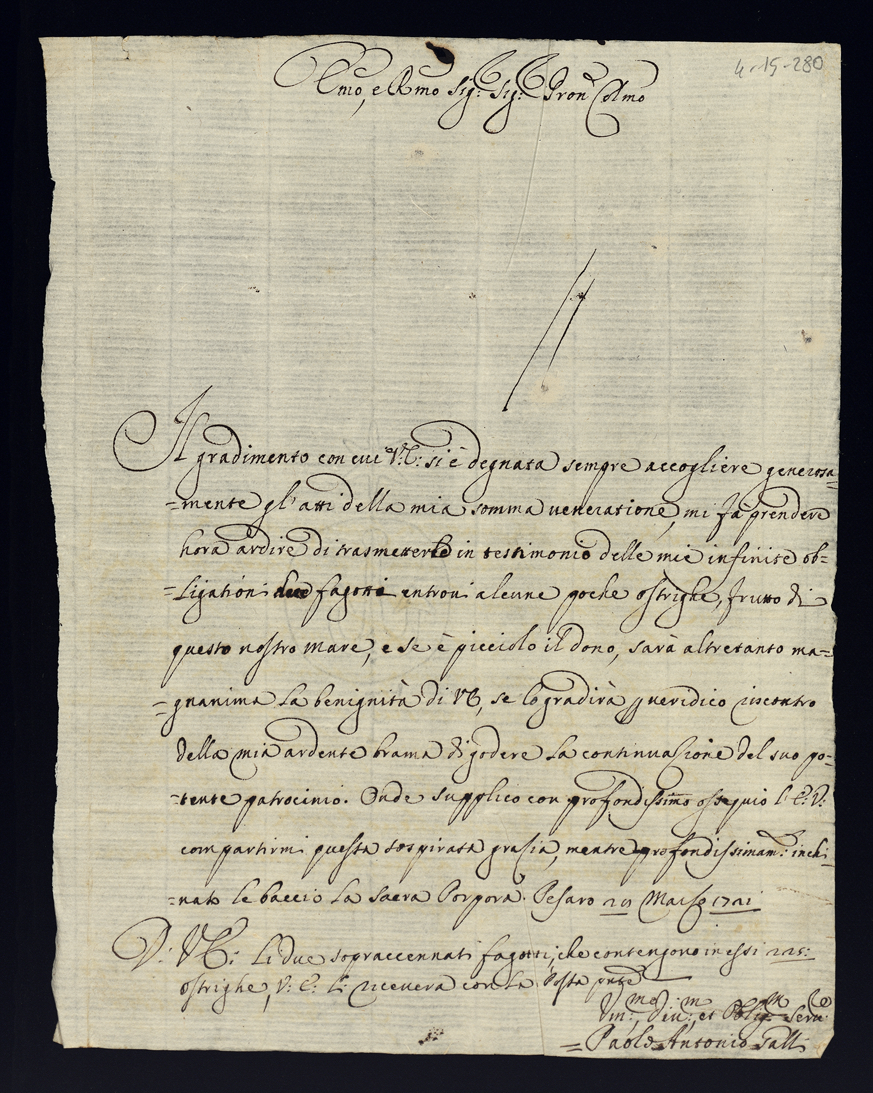 4-15-280
Emo, e Rmo Sig: Sig: Pron Colmo
Il gradimento con cui V: E: si è degnata sempre accogliere generosa-
-mente gl'atti della mia somma veneratione, mi fa prendere
hora ardire di trasmetterle in testimonio delle mie infinite ob-
-ligationi due fagotti entrovi alcune poche ostrighe, frutto di
questo nostro mare, e se è picciolo il dono, sarà altretanto ma-
-gnanima la benignità di VE, se lo gradirà p veridico riscontro
della mia ardente brama di godere la continuazione del suo po-
-tente patrocinio. Onde supplico con profondissimo ossequio l'E: V:
compartirmi questa sospirata grazia, mentre profondissimam: inchi-
-nato le baccio la Sacra Porpora. Pesaro Marzo 1721
D: VE: Li due sopraccennati fagotti, che contengono in essi 225:
ostrighe, V: E: li riceverà con la Posta pnte
Vm:mo, Div:m, et Oblig:m Serv:e
=Paolo Antonio Galli